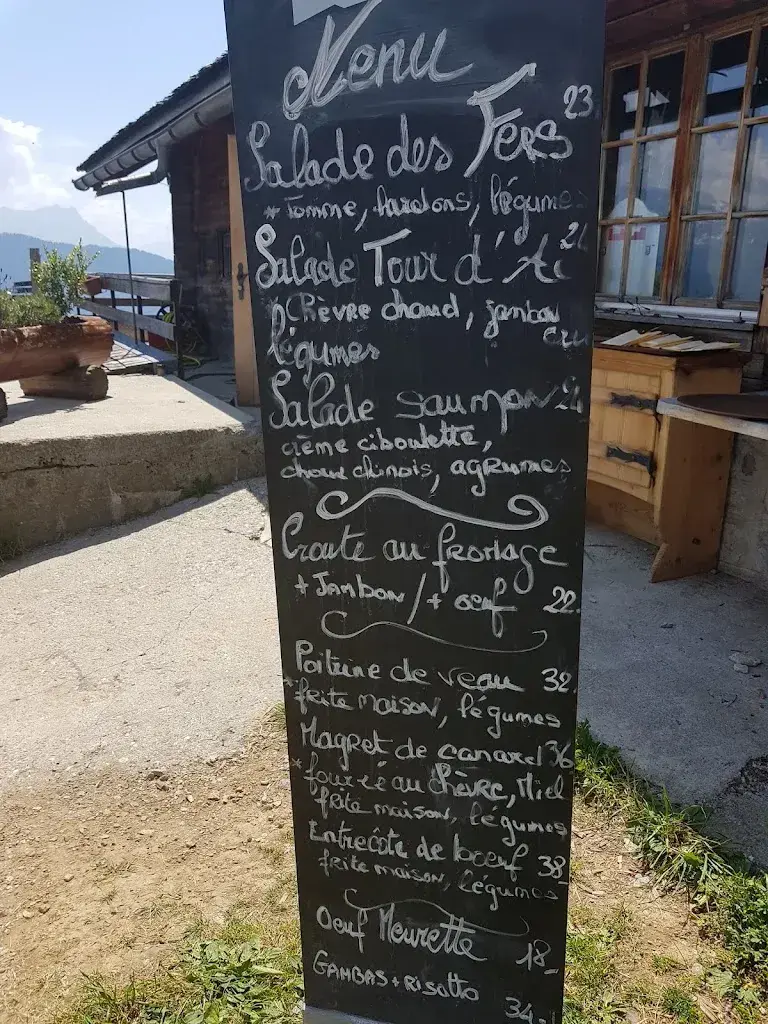 Menu
Salade des Fers 23
* Tomme, lardons, légumes
Salade Tour d'Aï
* Chèvre chaud, jambon
cru
légumes
Salade saumon 24
crème ciboulette,
choux chinois, agrumes
Croute au fromage
+ Jambon / + oeuf 22.
Poitrine de veau 32.
* frite maison, légumes
Magret de canard 36
* fourré au chèvre, Miel
frite maison, légumes
Entrecôte de boeuf 38.-
frite maison, légumes
Oeuf Meurette 18.-
GAMBAS + Risotto 34.-